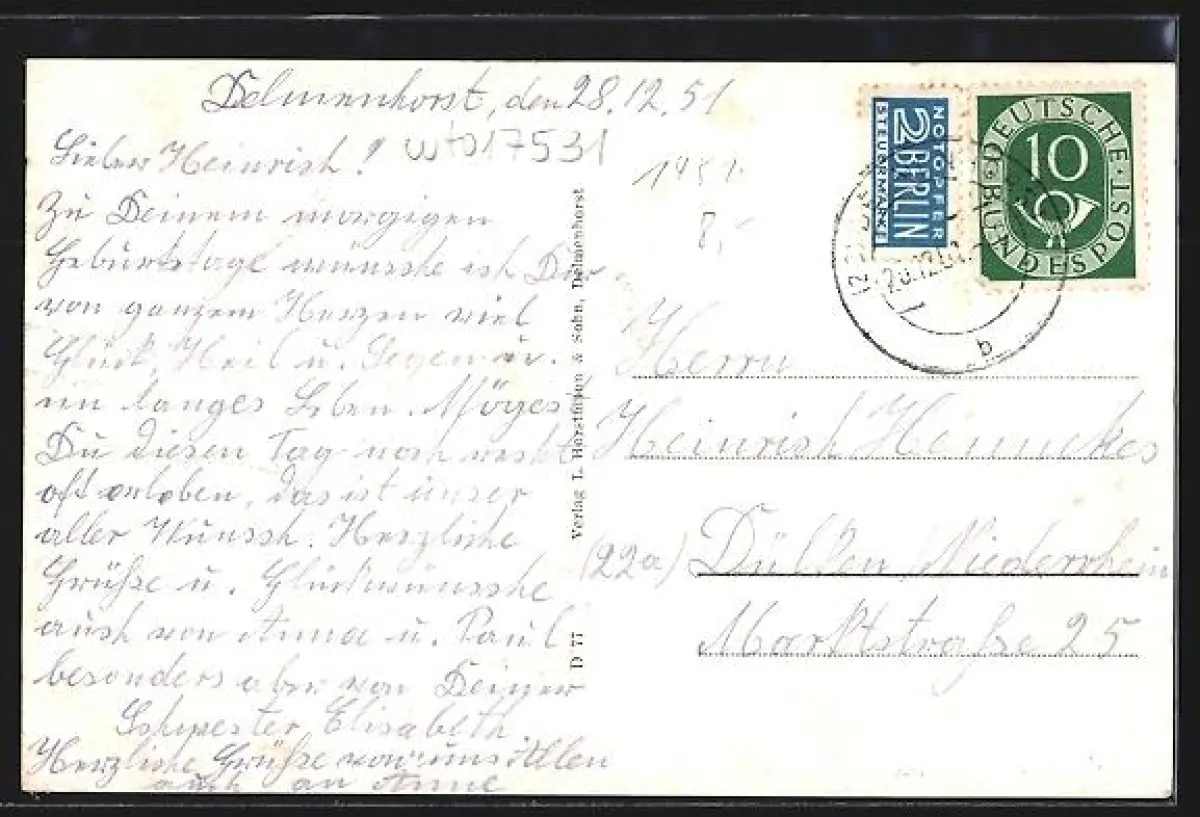 Delmenhorst, den 28.12.51
wto17531
Lieber Heinrich!
Zu Deinem morgigen
Geburtstage wünsche ich Dir
von ganzem Herzen viel
Glück, Heil u. Segen u.
ein langes Leben. Möges
Du diesen Tag noch recht
oft erleben, das ist unser
aller Wunsch. Herzliche
Grüße u. Glückwünsche
auch von Anna u. Paul
besonders aber von Deiner
Schwester Elisabeth.
Herzliche Grüße von uns Allen
auch an Anne
Verlag L. Horstmann & Sohn, Delmenhorst
D 77
1951
8,-
NOTOPFER
2 BERLIN
STEUERMARKE
DEUTSCHE BUNDESPOST
10
b
Herrn
Heinrich Hennekes
(22a) Dülken, Niederrhein
Marktstraße 25